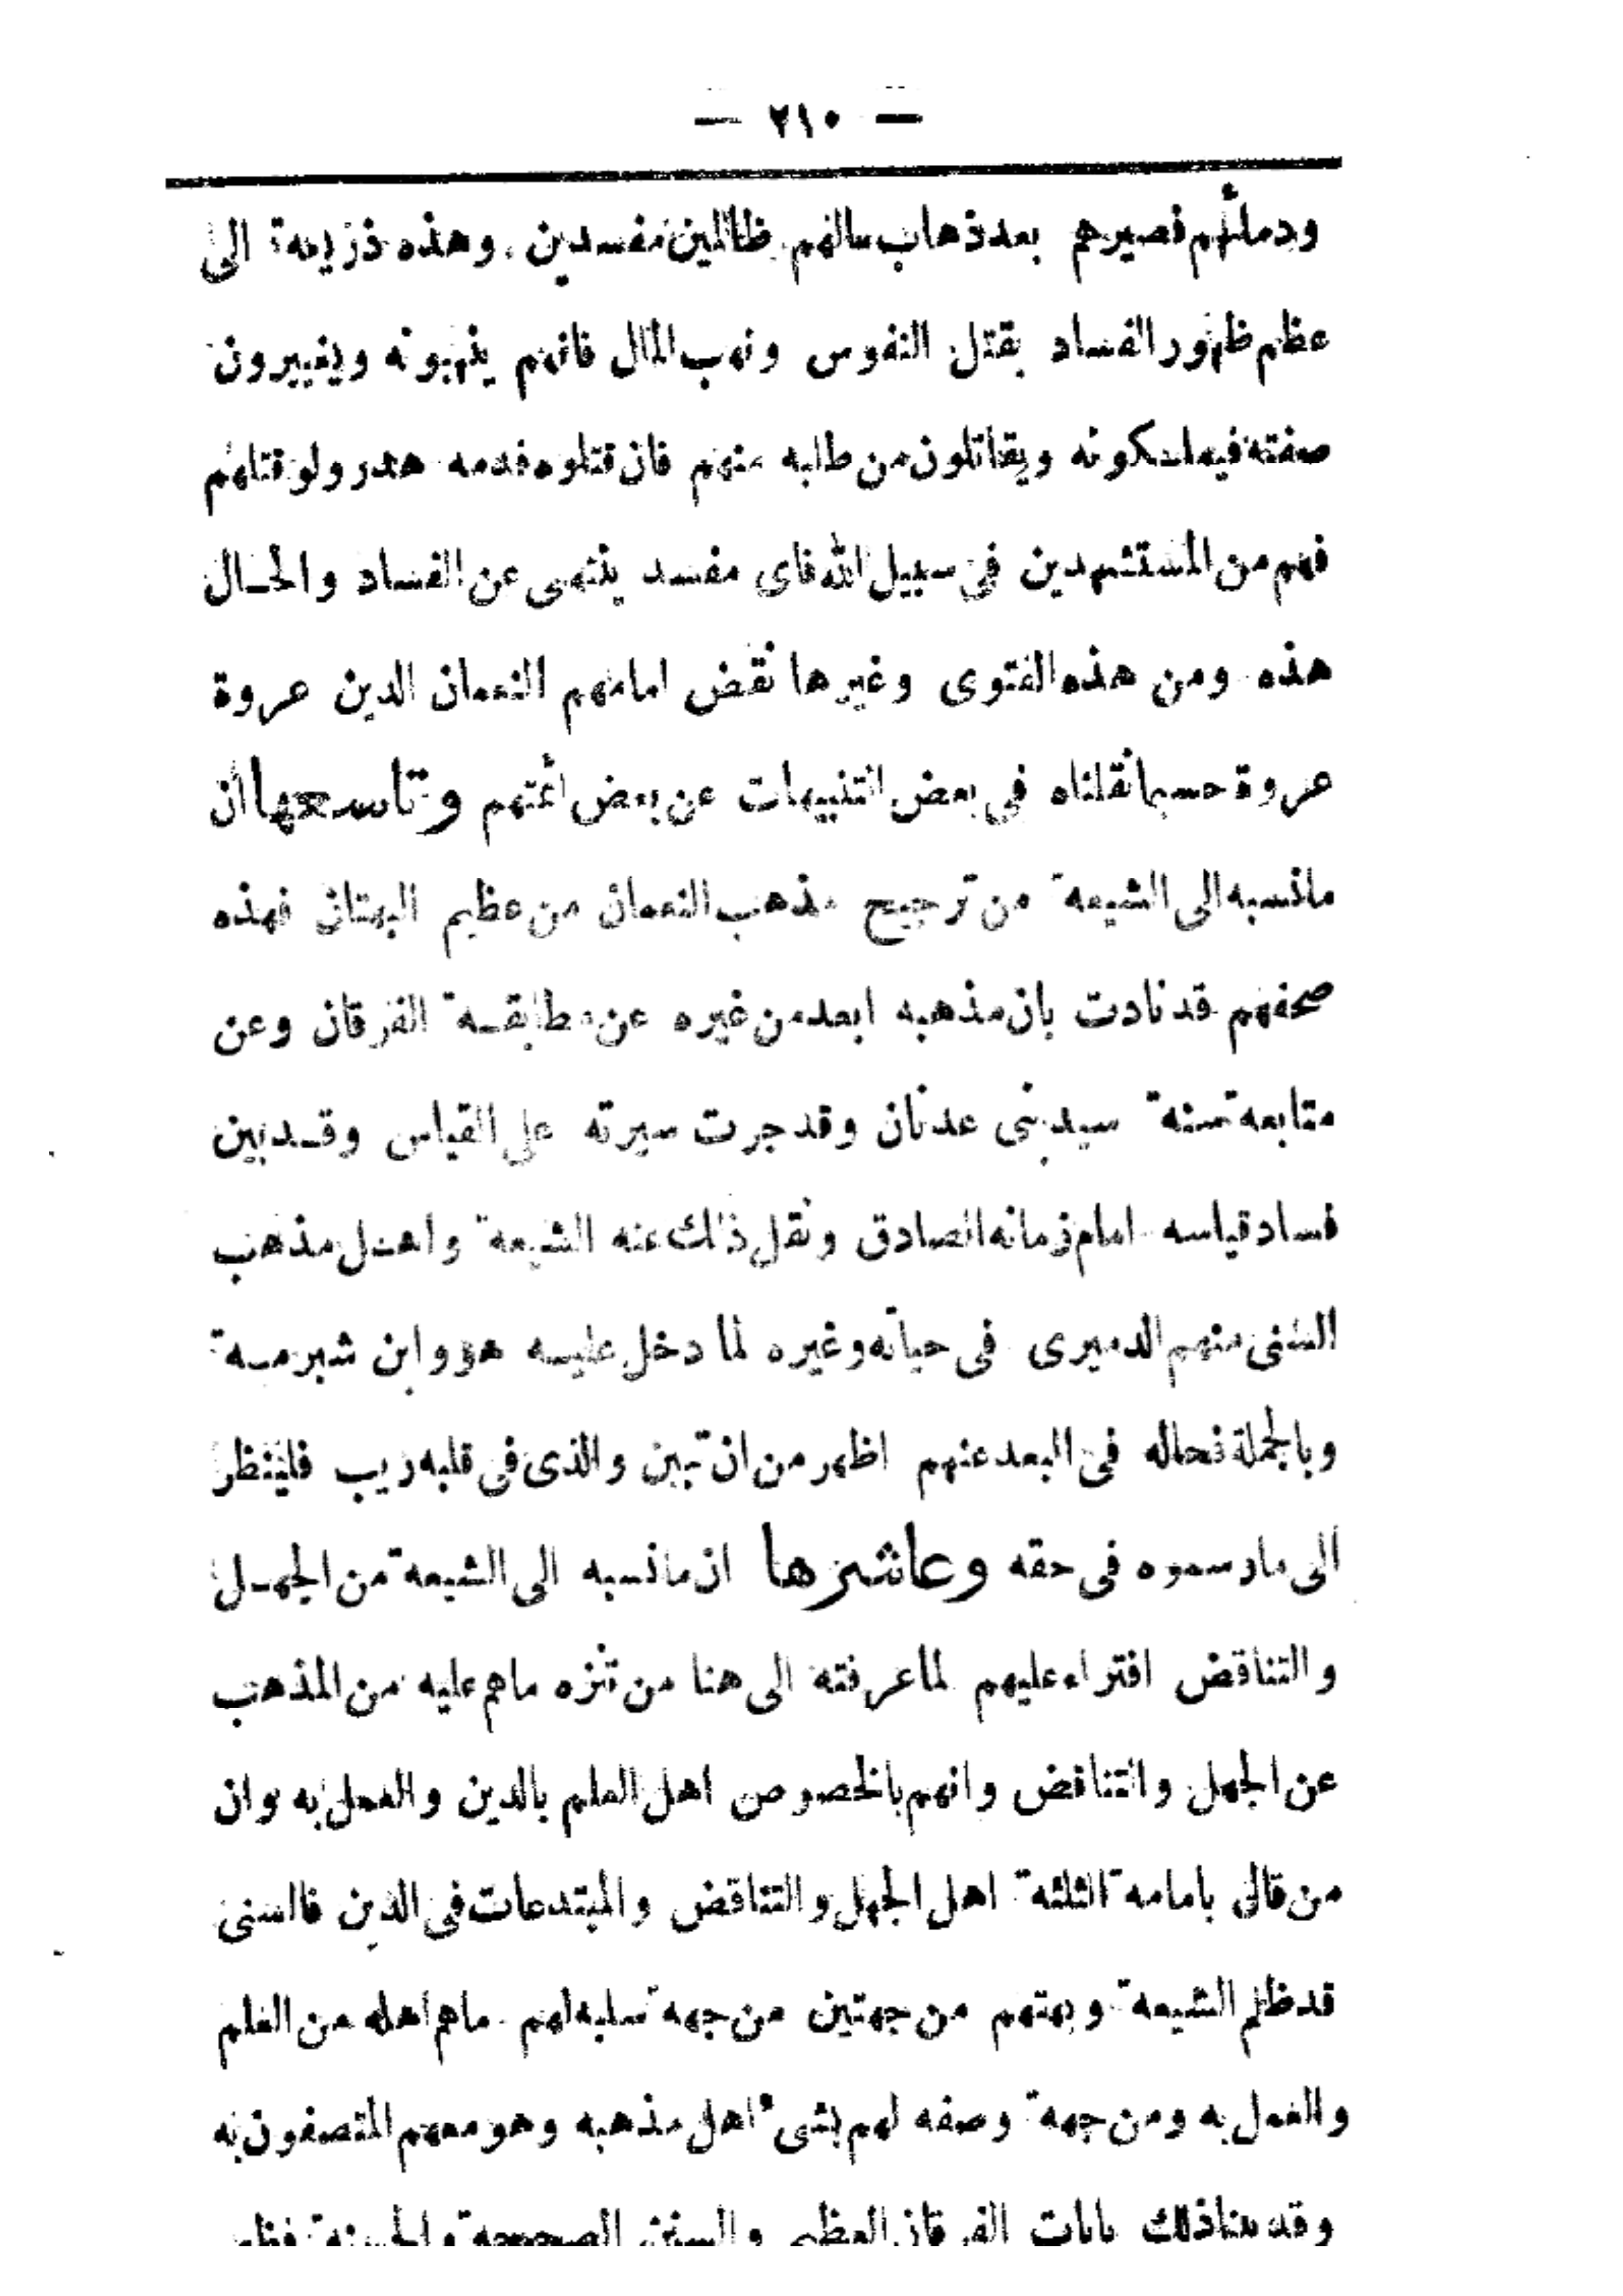 — ٢١٠ —
ودمائهم فصيرهم بعد ذهاب مالهم ظالمين مفسدين . وهذه ذريعة الى
عظم ظهور الفساد بقتل النفوس ونهب المال فانهم ينهبونه ويغييرون
صفته فيملكونه ويقاتلون من طلبه منهم فان قتلوه فدمه هدر ولو قتلهم
فهم من المستشهدين فى سبيل الله فاى مفسد ينتهى عن الفساد والحال
هذه ومن هذه الفتوى وغيرها نقض امامهم النعمان الدين عروة
عروة حسبما نقلناه فى بعض التنبيهات عن بعض أئمتهم وتاسعها أن
مانسبه الى الشيعة من ترجيح مذهب النعمان من عظيم البهتان فهذه
صحفهم قد نادت بان مذهبه ابعد من غيره عن مطابقة الفرقان وعن
متابعة سنة سيد بنى عدنان وقد جرت سيرته على القياس وقد بين
فساد قياسه امام زمانه الصادق ونقل ذلك عنه الشيعة واهل مذهب
السنى منهم الدميرى فى حياته وغيره لما دخل عليه هو وابن شبرمة
وبالجملة فحاله فى البعد عنهم اظهر من ان تبين والذى فى قلبه ريب فلينظر
الى مارسموه فى حقه وعاشرها ان مانسبه الى الشيعة من الجهل
والتناقض افتراء عليهم لما عرفته الى هنا من تنزه ماهم عليه من المذهب
عن الجهل والتناقض وانهم بالخصوص اهل العلم بالدين والعمل به وان
من قال بامامة الثلثة اهل الجهل والتناقض والمبتدعات فى الدين فالسنى
قد ظلم الشيعة وبهتهم من جهتين من جهة سلبه لهم ماهم اهله من العلم
والعمل به ومن جهة وصفه لهم بشىء اهل مذهبه وهو معهم المتصفون به
وقد بينا ذلك بايات الفرقان العظيم والسنن الصحيحة والحسنة